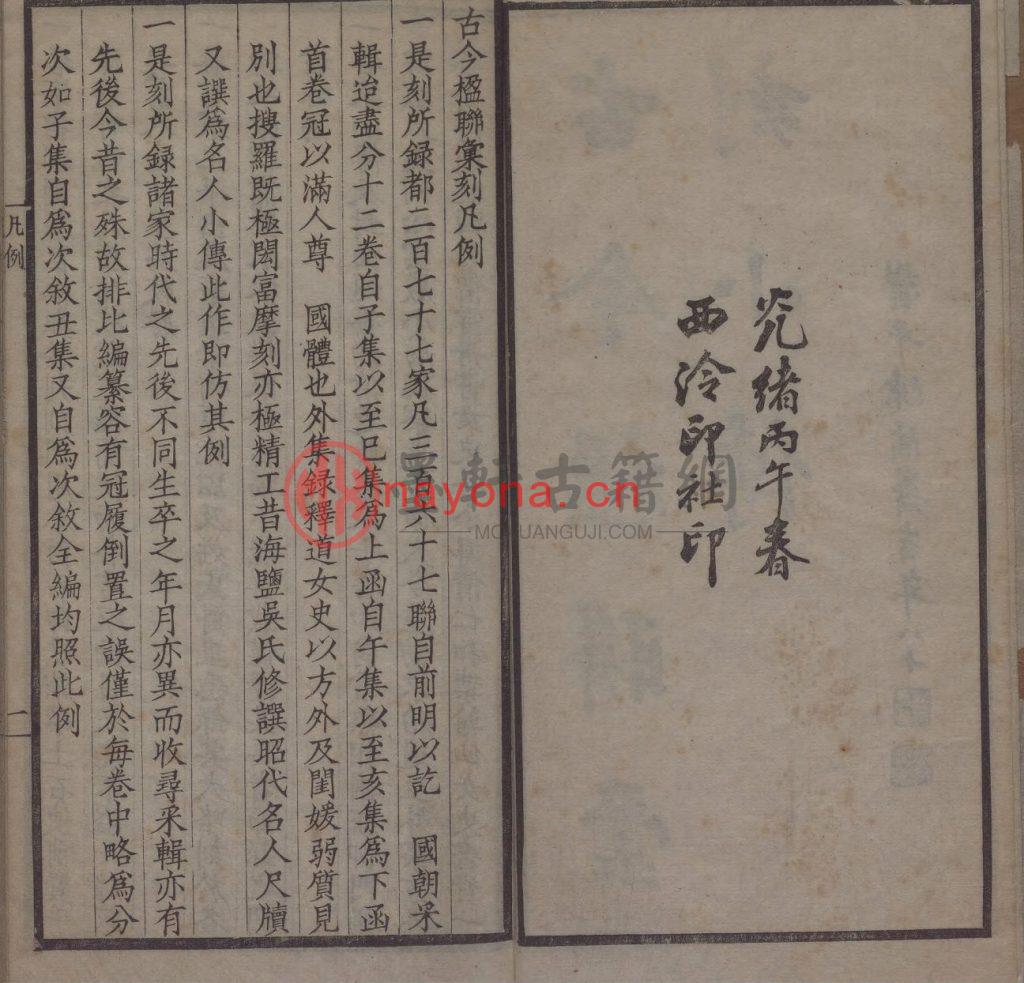 光緒丙午春
西泠印社印
古今楹聯彙刻凡例
一是刻所録都二百七十七家凡三百六十七聯自前明以訖　國朝采
輯迨盡分十二卷自子集以至巳集為上函自午集以至亥集為下函
首卷冠以滿人尊　國體也外集録釋道女史以方外及閨媛弱質見
別也搜羅既極閎富摩刻亦極精工昔海鹽吳氏修譔昭代名人尺牘
又譔為名人小傳此作即仿其例
一是刻所録諸家時代之先後不同生卒之年月亦異而收尋采輯亦有
先後今昔之殊故排比編纂容有冠履倒置之誤僅於每卷中略為分
次如子集自為次敘丑集又自為次敘全編均照此例
凡例
一
墨軒古籍網
nayona.cn
MOXUANGUJI.COM